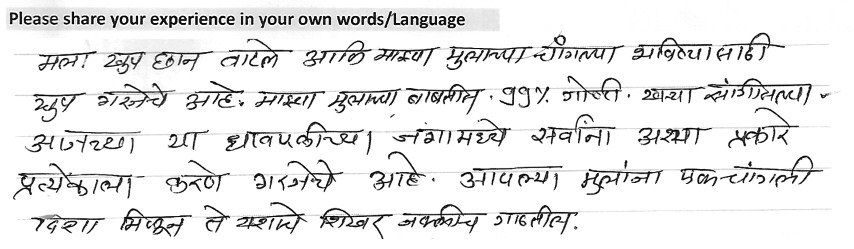 Please share your experience in your own words/Language
मला खुप छान वाटले आणि माझ्या मुलाच्या चांगल्या भविष्यासाठी
खुप गरजेचे आहे. माझ्या मुलाच्या बाबतीत. 99%. गोष्टी. खऱ्या सांगीतल्या.
आजच्या या धावपळीच्या जगामध्ये सर्वांना अश्या प्रकारे
प्रत्येकाला करणे गरजेचे आहे. आपल्या मुलांना एक चांगली
दिशा मिळून ते यशाचे शिखर नक्कीच गाठतील.